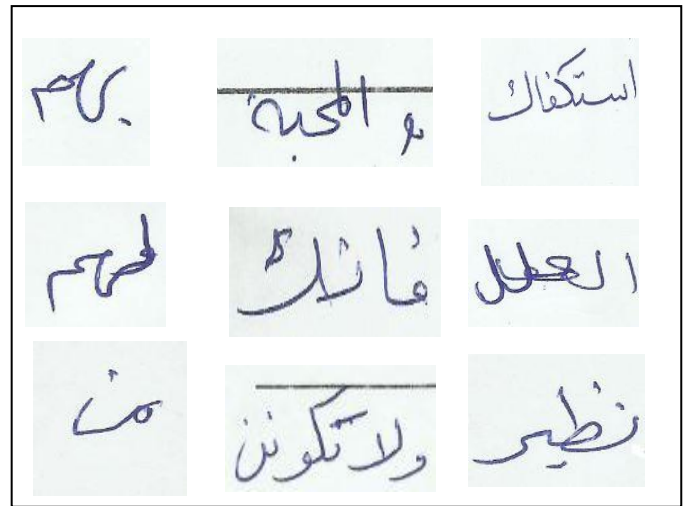 استكفاك والمحبة بهم
العلل فانك لهم
نظير ولا تكونن من